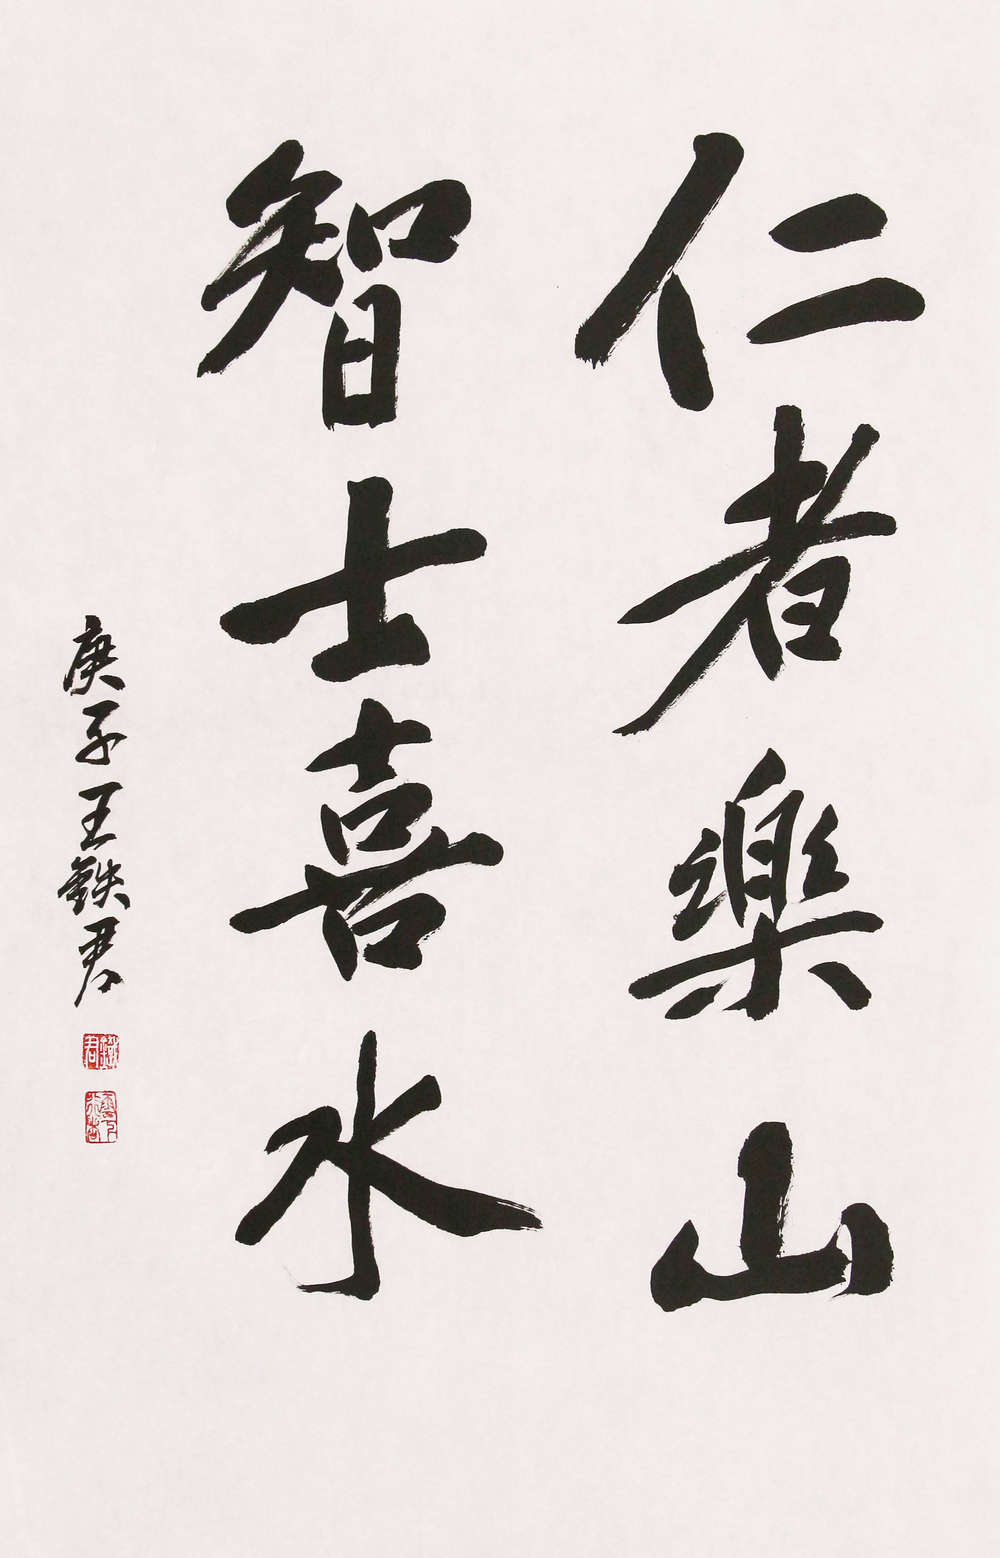 仁者樂山
智士喜水
庚子王鉄君